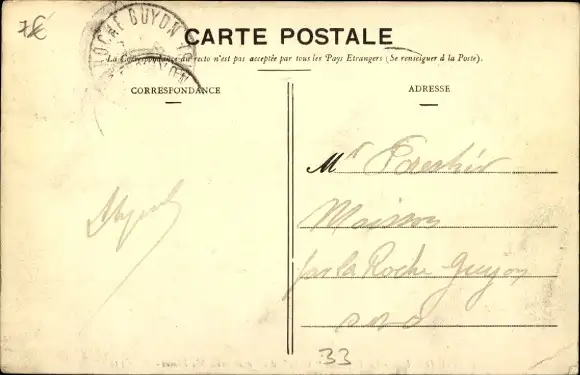 7€
LA ROCHE GUYON
CARTE POSTALE
La Correspondance au recto n'est pas acceptée par tous les Pays Etrangers (Se renseigner à la Poste).
CORRESPONDANCE
ADRESSE
Mr
Maison
par la Roche Guyon
33